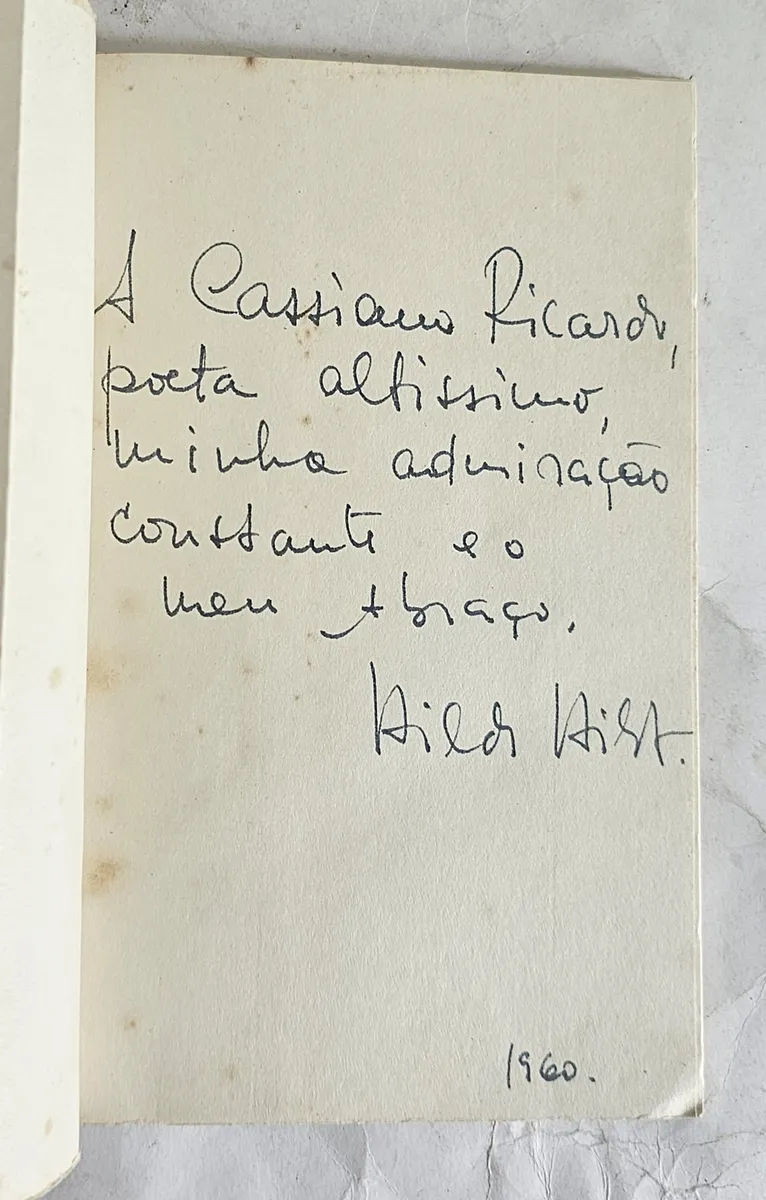 A Cassiano Ricardo,
poeta altissimo,
minha admiração
constante e o
meu abraço.
Hilda Hilst.
1960.